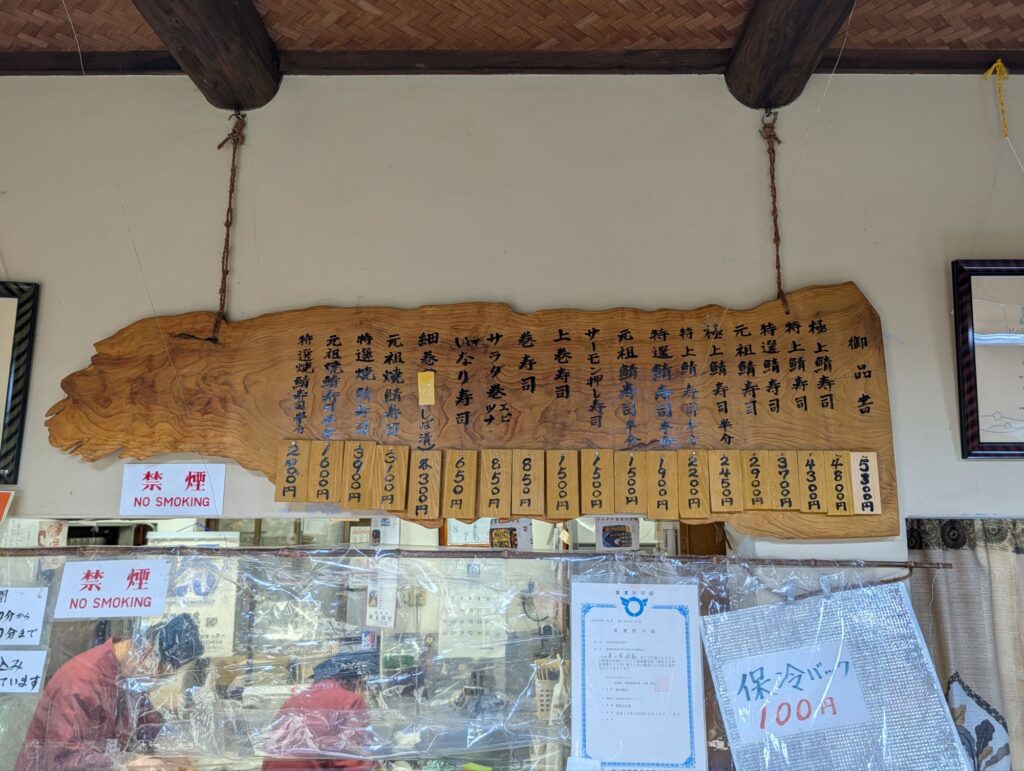 御品書
極上鯖寿司
特上鯖寿司
特選鯖寿司
元祖鯖寿司
極上鯖寿司半分
特上鯖寿司半分
特選鯖寿司半分
元祖鯖寿司半分
サーモン押し寿司
上巻寿司
巻寿司
サラダ巻 エビ ツナ
いなり寿司
細巻 しば漬)
元祖焼鯖寿司
特選焼鯖寿司
元祖焼鯖寿司半分
特選焼鯖寿司半分
5300円
4800円
4300円
3700円
2900円
2450円
2200円
1900円
1500円
1500円
1500円
850円
850円
650円
各300円
3100円
3900円
1600円
2000円
禁煙
NO SMOKING
禁煙
NO SMOKING
0分から
0分まで
込み
ています
営業許可証
保冷バック
100円